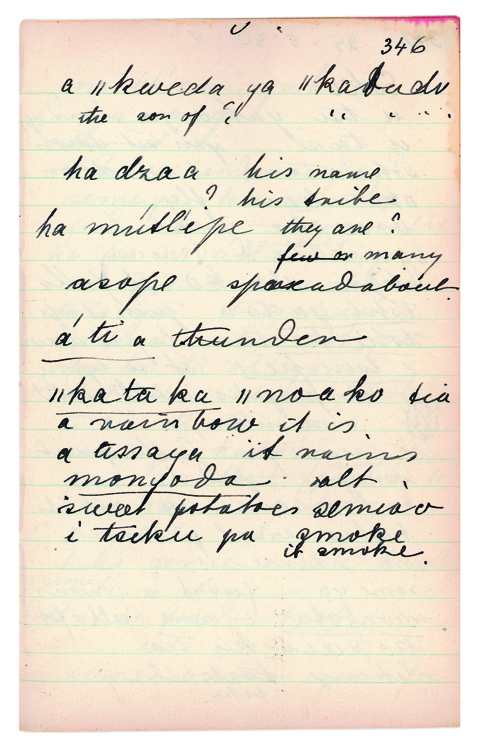 346
a ǁkweda ya ǁkabudu
the son of ? " " "
ha dzaa his name
? his tribe
ha mútl'epe they are?
few or many
asope spread about
á ti a thunder
ǁkata ka ǁnoako tia
a rainbow it is
a tissaya it rains
mongoda salt
sweet potatoes
i tseku pa smoke
it smoke.